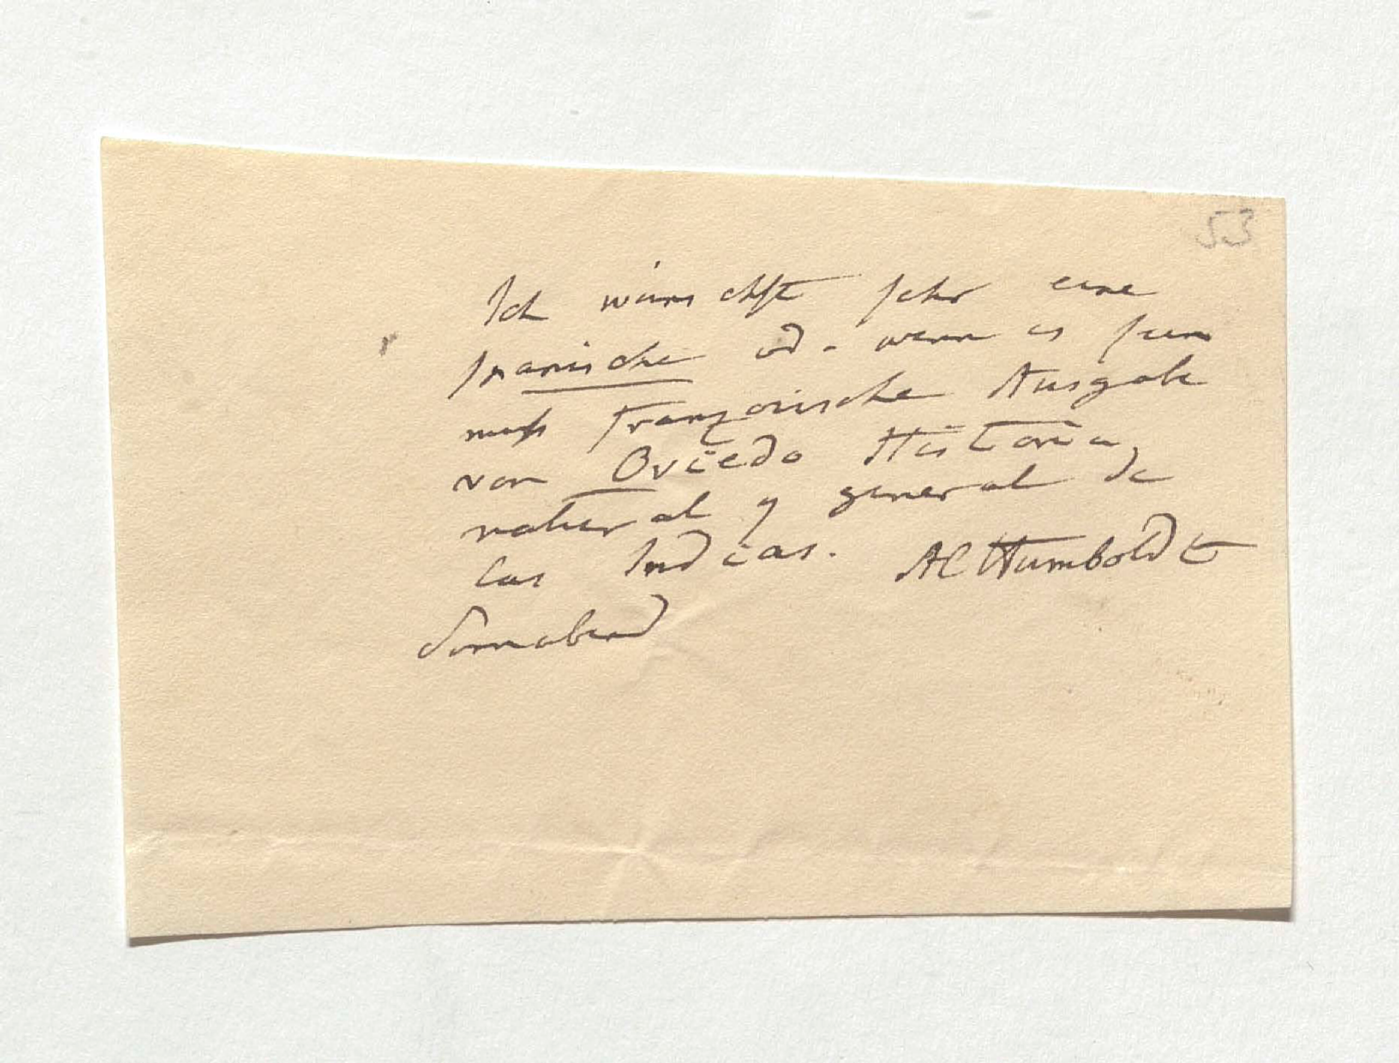 53
Ich wünschte sehr eine
spanische od. wenn es sein
muß Französische Ausgabe
von Oviedo Historia
natural y general de
las Indias. AlHumboldt
Sonnabend